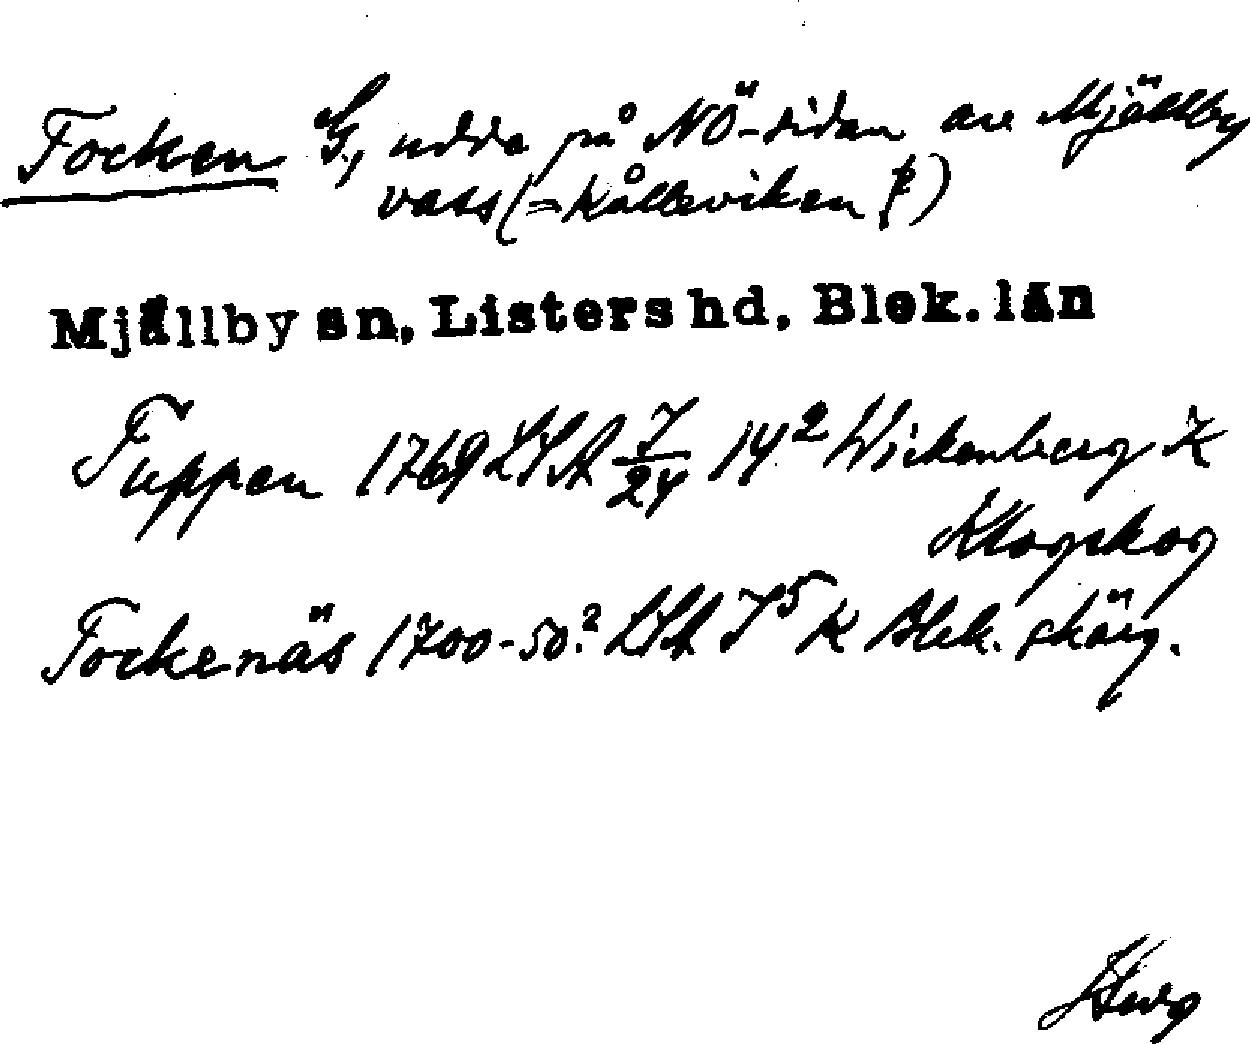 Focken G, udde på NÖ-sidan av Mjällby
vass (= Kålleviken)
Mjällby sn, Listers hd, Blek. län
Fuppen 1769 LSA 7/24 14² Wickenberg K
Klagskog
Fockenäs 1700-50? LSA J⁵ K Blek. skärg.